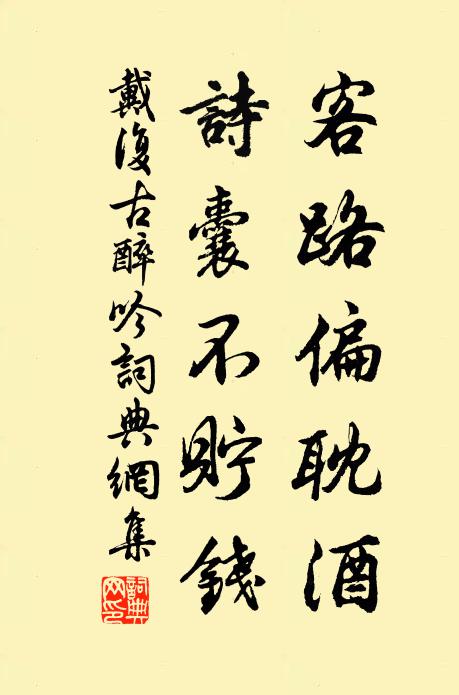 客路偏耽酒
詩囊不貯錢
戴復古醉吟詞典網集